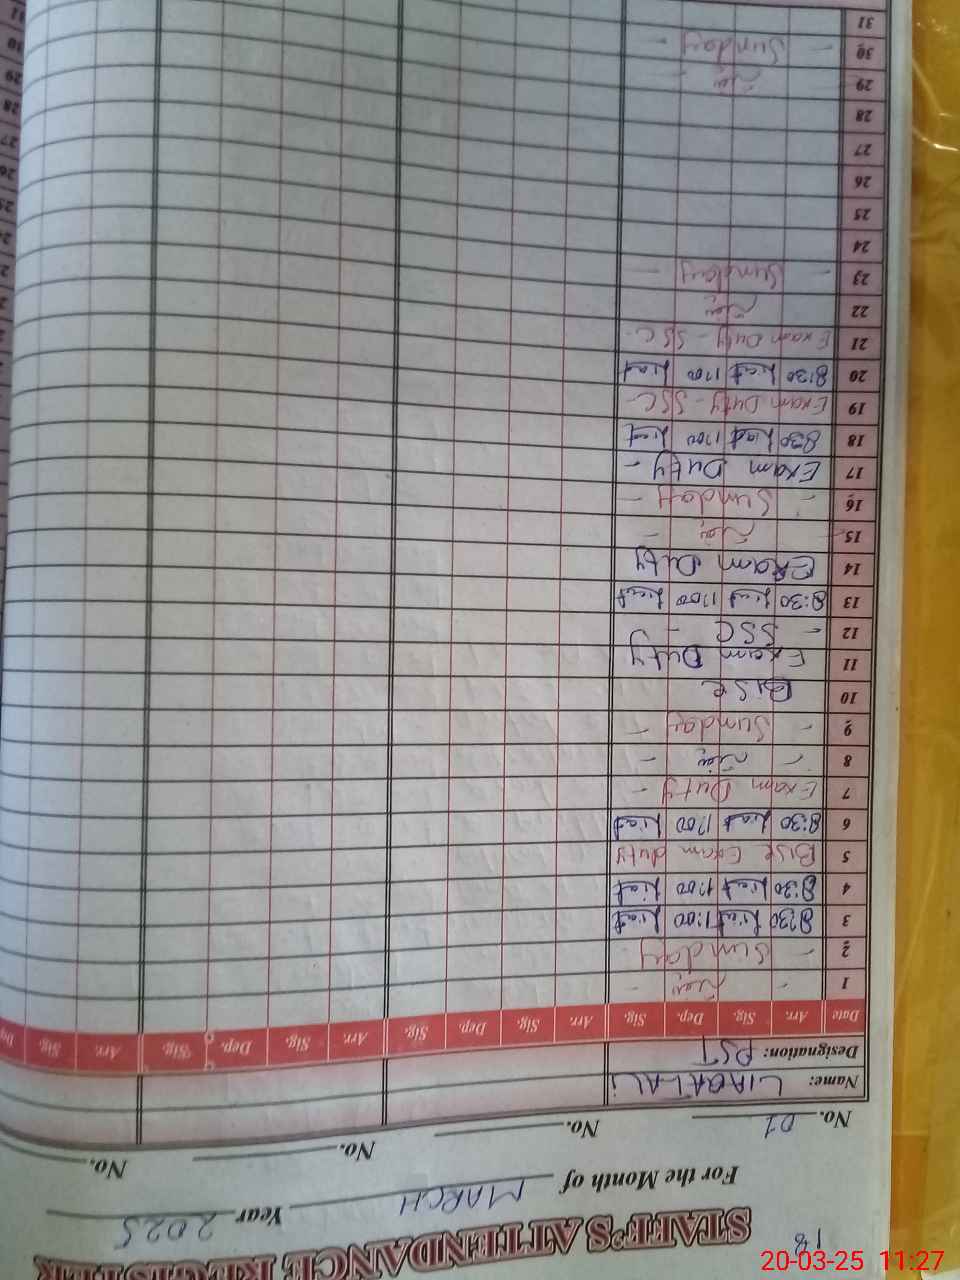 18
STAFF'S ATTENDANCE REGISTER
For the Month of MARCH Year 2025
No. 01 No. No. No.
Name: LIAQAT ALI
Designation: PST
Date Arr. Sig. Dep. Sig. Arr. Sig. Dep. Sig. Arr. Sig. Dep. Sig. Arr. Sig.
1 - -
2 - Sunday -
3 8:30 Liat 1:00 Liat
4 8:30 Liat 1:00 Liat
5 BISE Exam duty
6 8:30 Liat 1:00 Liat
7 Exam Duty -
8 - -
9 - Sunday -
10 BISE
11 Exam Duty
12 - SSC -
13 8:30 Liat 1:00 Liat
14 Exam Duty
15 - -
16 - Sunday -
17 Exam Duty -
18 8:30 Liat 1:00 Liat
19 Exam Duty - SSC -
20 8:30 Liat 1:00 Liat
21 Exam Duty - SSC -
22
23 - Sunday -
24
25
26
27
28
29
30 - Sunday -
31
20-03-25 11:27